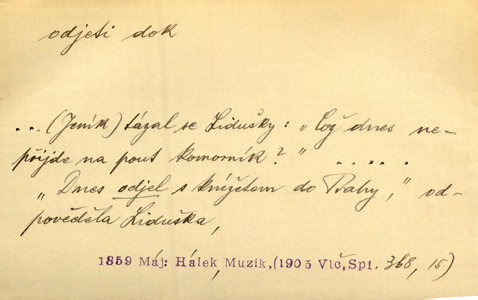 odjeti dok
... (Jeník) tázal se Lidušky: "Což dnes ne-
přijde na pouť komorník?" .....
"Dnes odjel s knížetem do Prahy," od-
pověděla Liduška,
1859 Máj: Hálek, Muzik, (1905 Vlč, Spi. 368, 15)